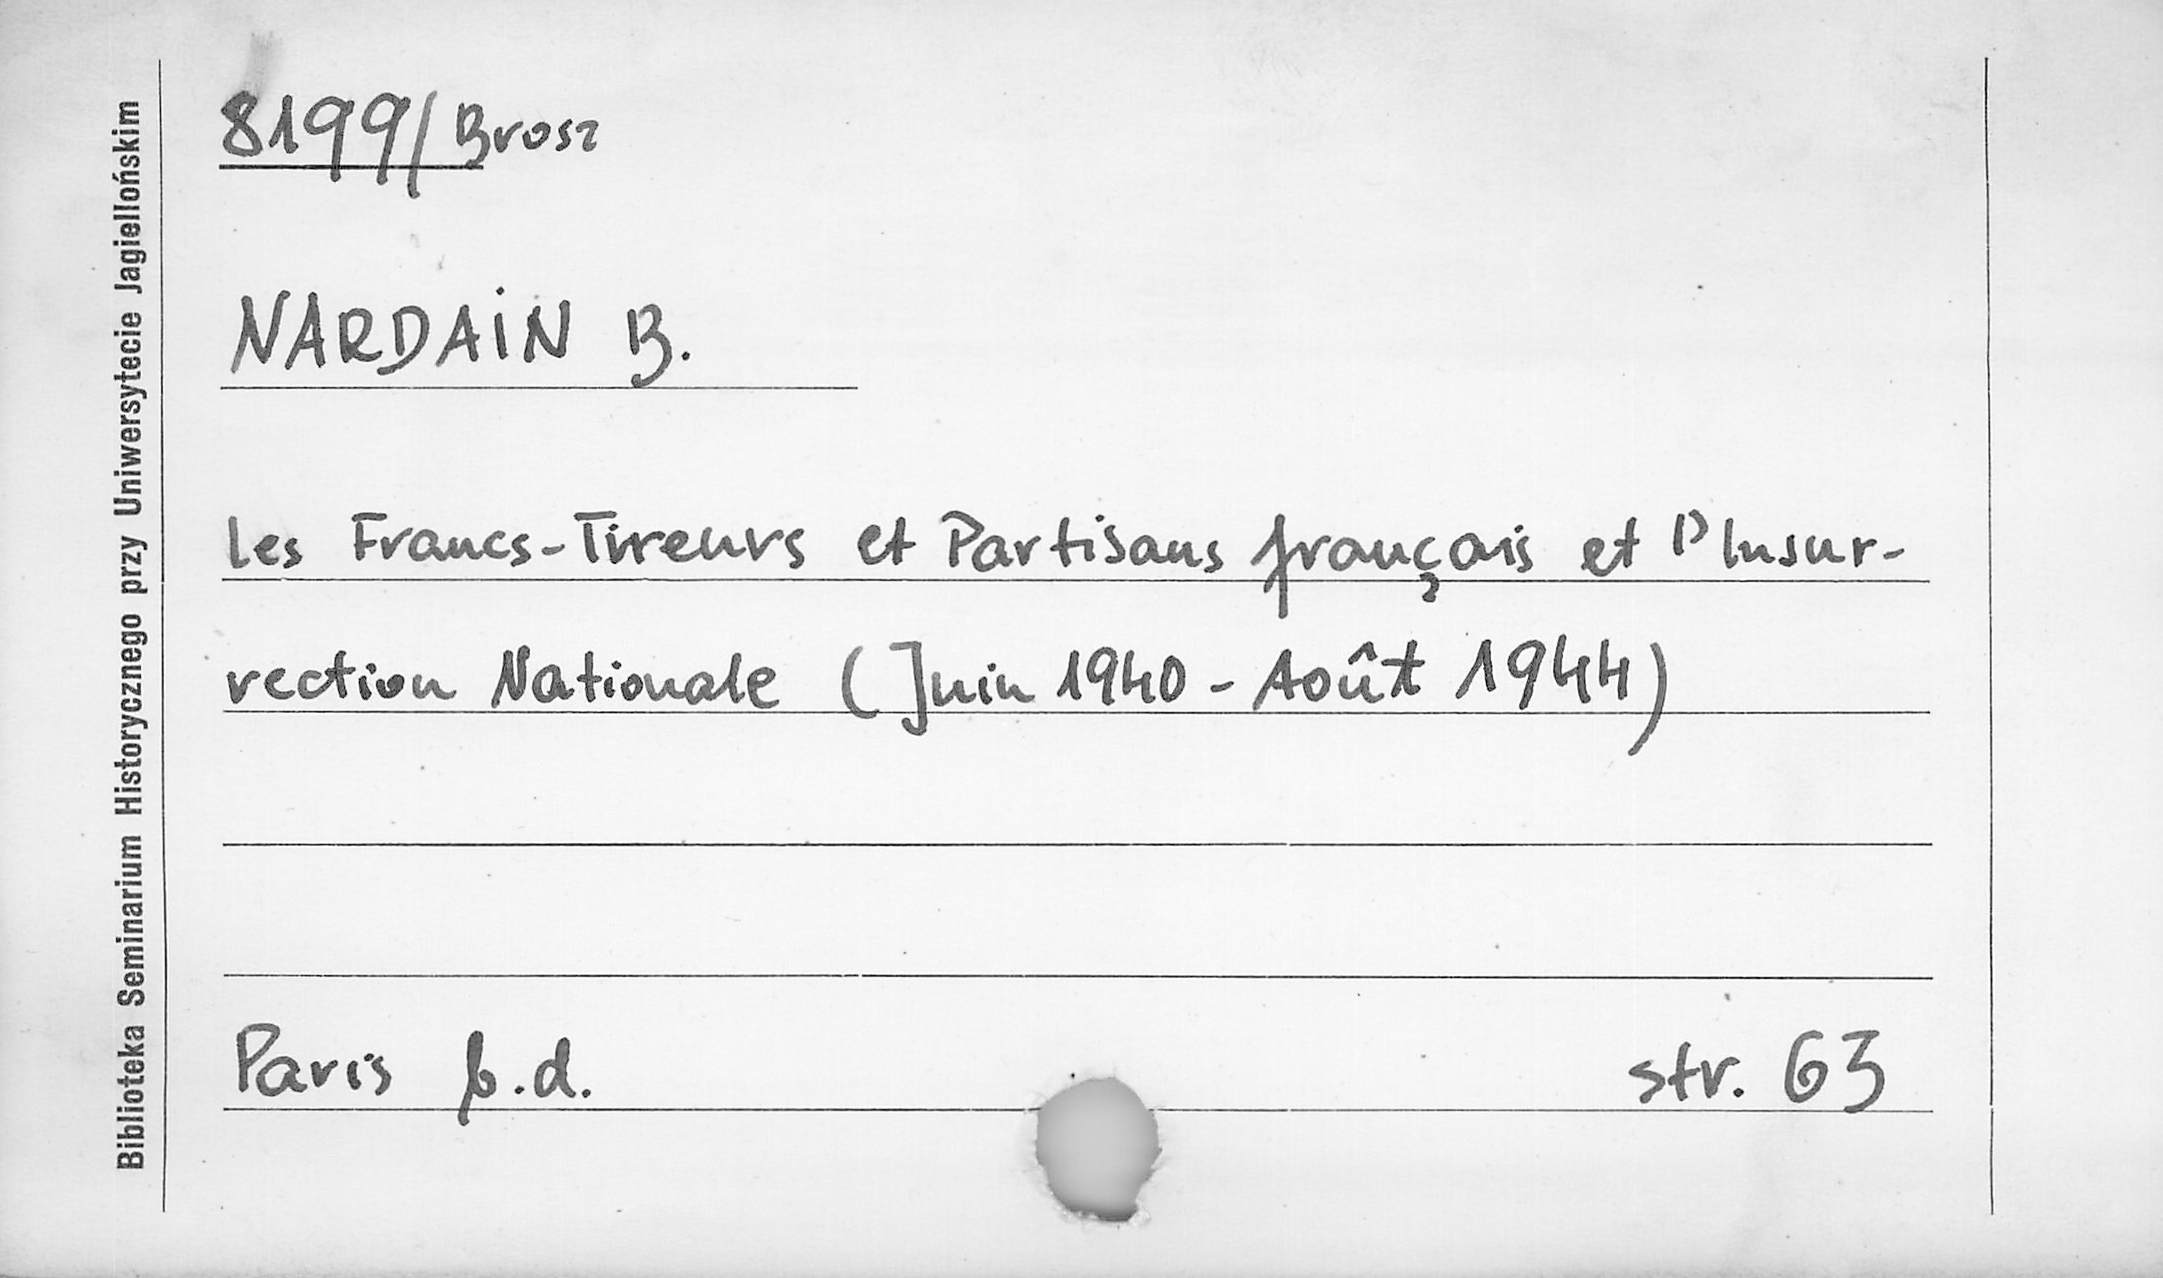 Biblioteka Seminarium Historycznego przy Uniwersytecie Jagiellońskim
8199/Brosz
NARDAIN B.
Les Francs-Tireurs et Partisans français et l'Insur-
rection Nationale (Juin 1940 - Août 1944)
Paris b.d.
str. 63